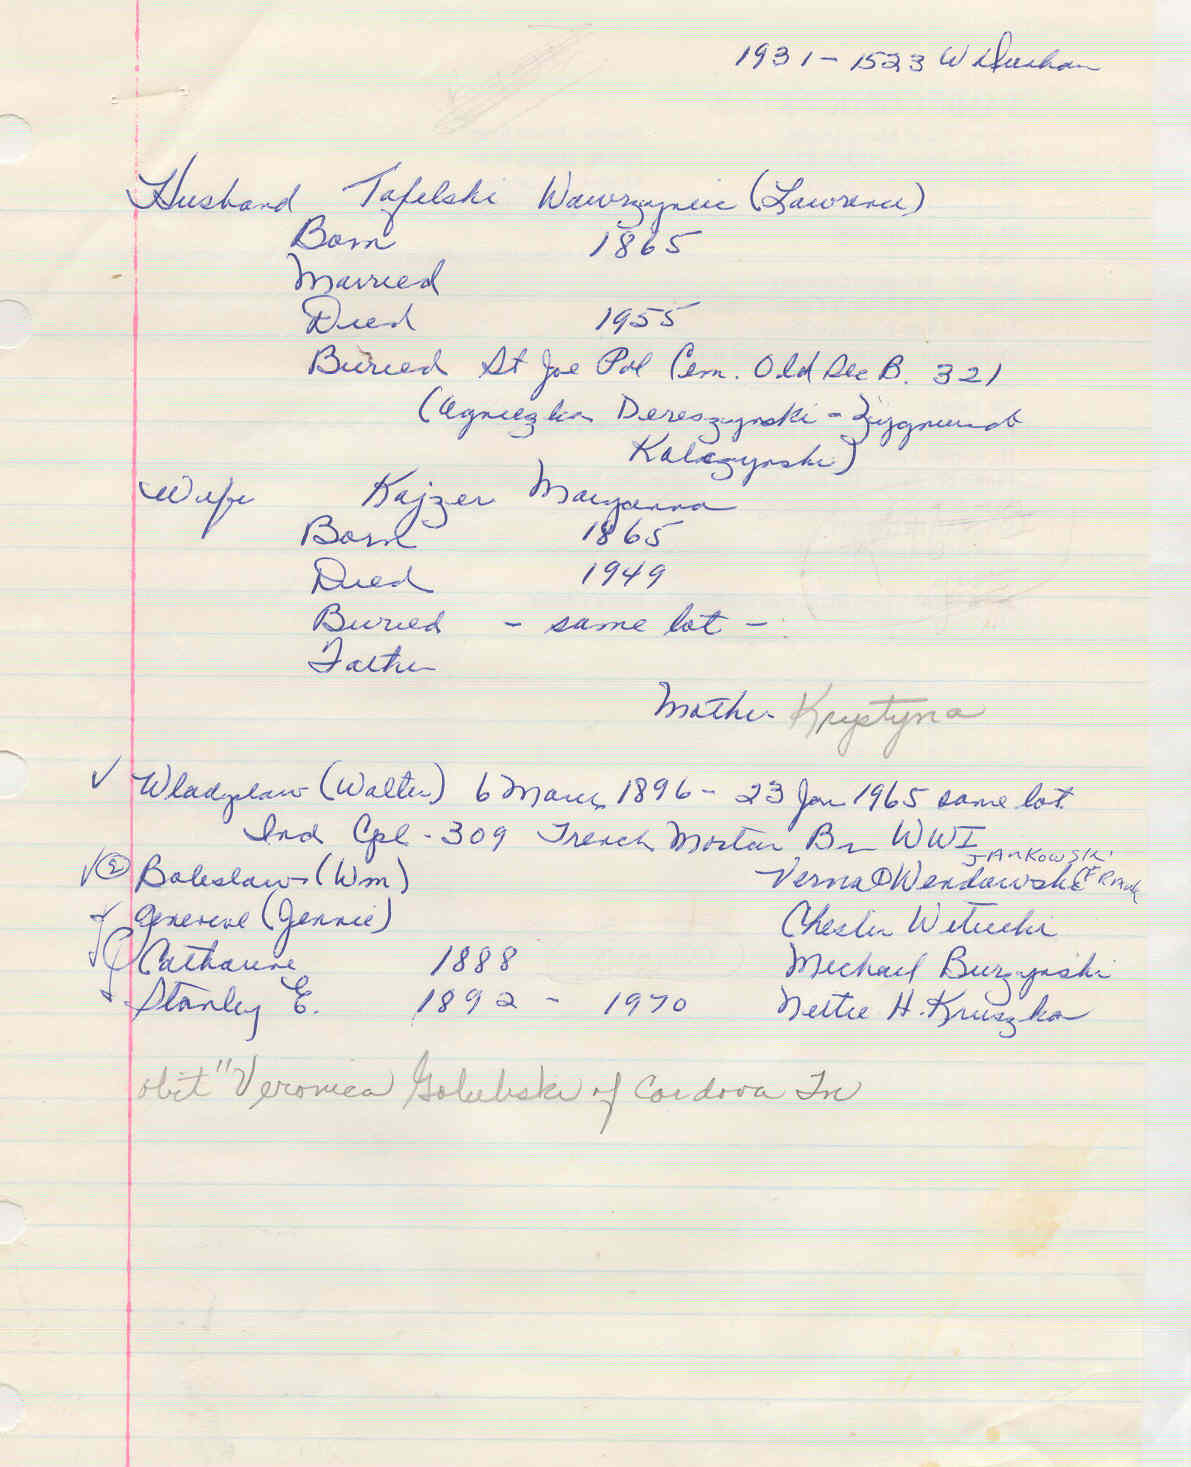 1931 - 1523 W Dunham
Husband Tafelski Wawrzyniec (Lawrence)
Born 1865
Married
Died 1955
Buried St Joe Pol Cem. Old Sec B. 321
(Agnieszka Dereszynski - Zygmunt
Kalczynski)
Wife Kajzer Maryanna
Born 1865
Died 1949
Buried - same lot -
Father
Mother Krystyna
✓ Wladyslaw (Walter) 6 Marc 1896 - 23 Jan 1965 same lot.
Ind Cpl - 309 Trench Mortar Bn WWI
Jankowski
✓ Boleslaw (Wm) Verna Wendowski Frank
Genevieve (Jennie) Chester Witucki
Catharine 1888 Michael Burzynski
Stanley E. 1892 - 1970 Nettie H. Kruszka
obit "Veronica Golubski of Cordova In